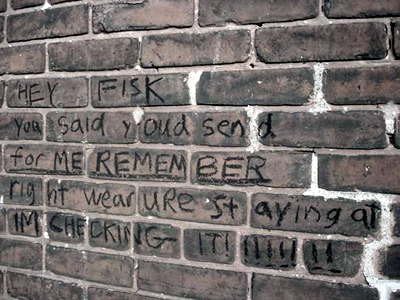 HEY FISK
you said youd send
for ME REMEMBER
right wear uRe staying at
IM CHECKING IT! !!!! !!